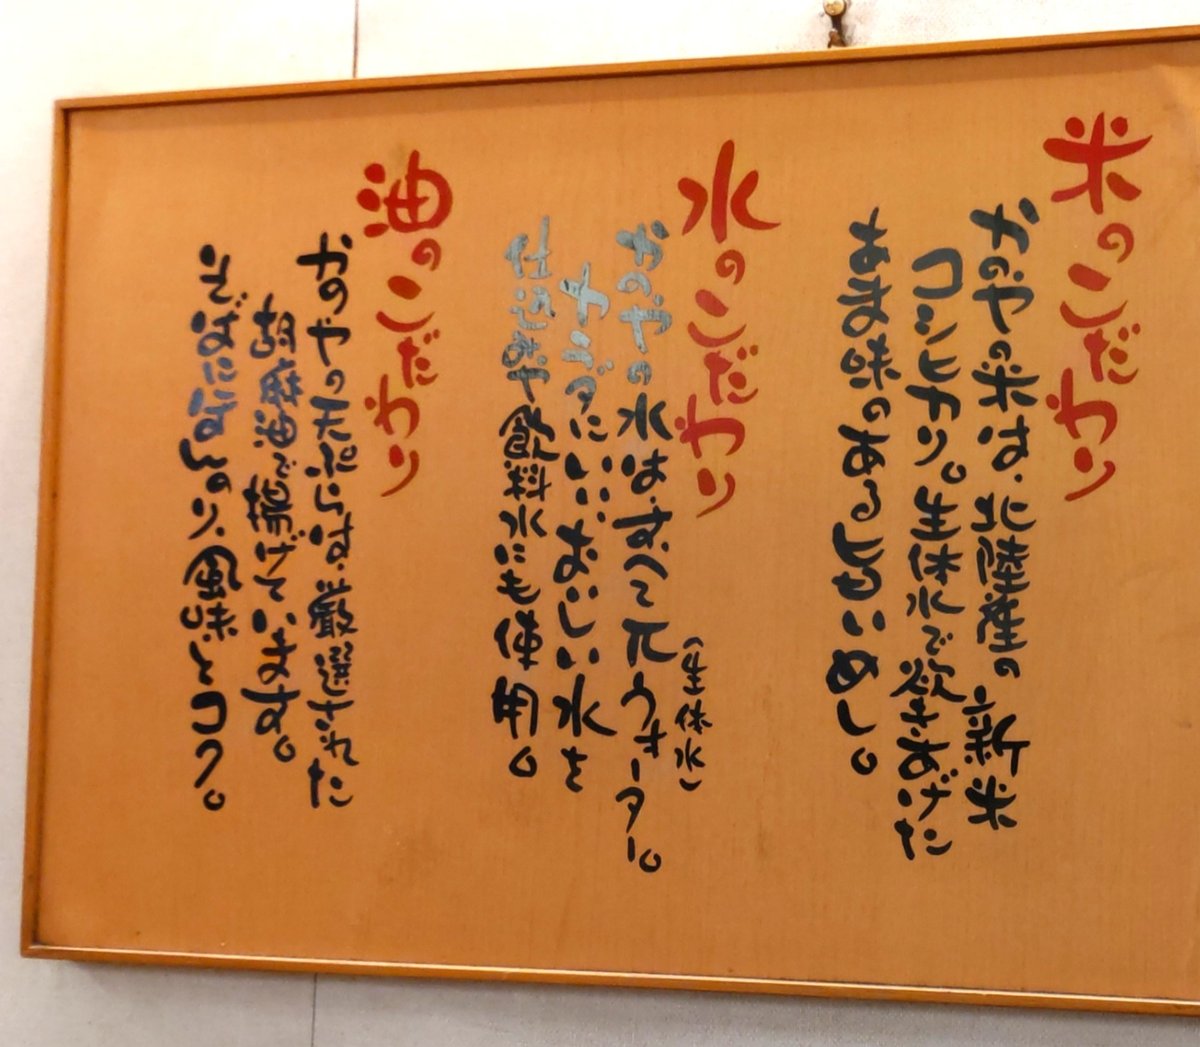 米のこだわり
かのやの米は、北陸産の新米
コシヒカリ。生体水で炊きあげた
あま味のある旨いめし。
水のこだわり
(生体水)
かのやの水は、すべてπウォーター。
カラダにいい、おいしい水を
仕込みや飲料水にも使用。
油のこだわり
かのやの天ぷらは、厳選された
胡麻油で揚げています。
そばにほんのり、風味とコク。